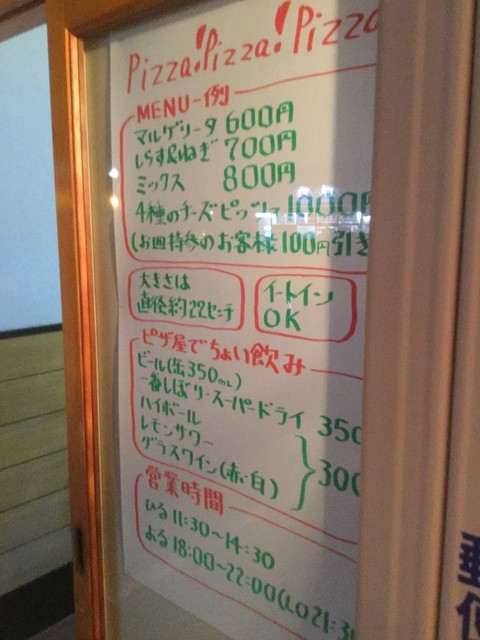 Pizza! Pizza! Pizza
MENU-例
マルゲリータ 600円
しらす&ねぎ 700円
ミックス 800円
4種のチーズピッツァ 1000円
(お皿持参のお客様100円引き
大きさは
直径約22センチ
イートイン
OK
ピザ屋でちょい飲み
ビール(缶350mL)
一番しぼり・スーパードライ 350
ハイボール
レモンサワー
グラスワイン(赤・白) 300
営業時間
ひる 11:30~14:30
よる 18:00~22:00(LO21:3
郵
便